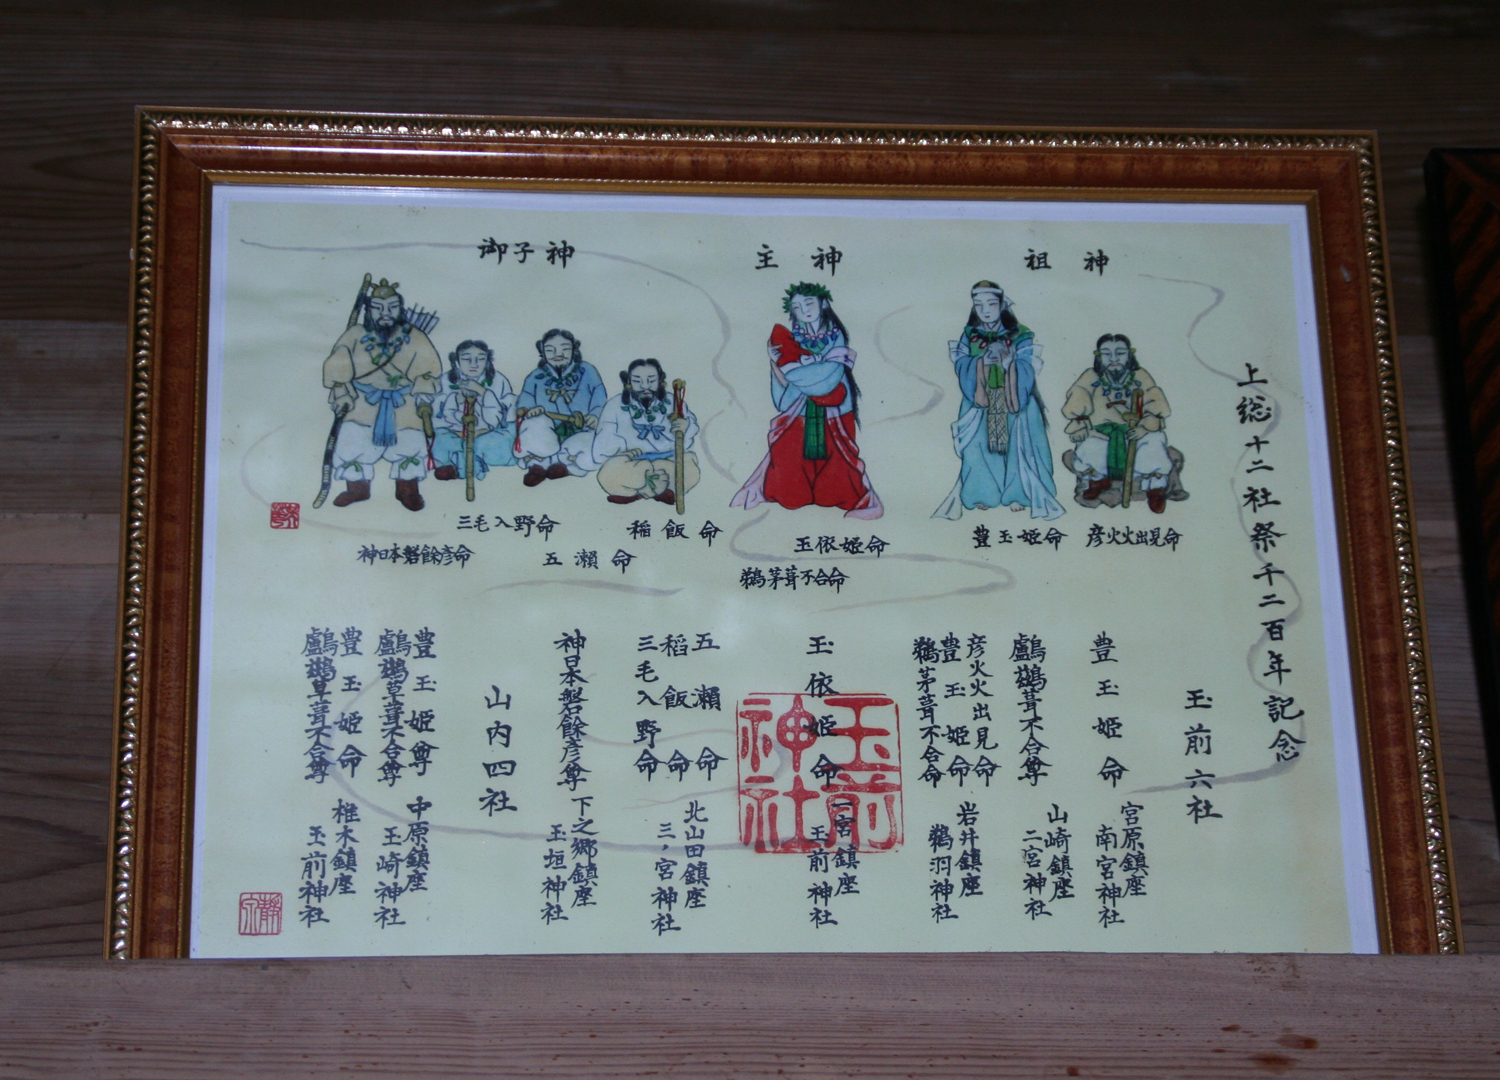 上総十二社祭千二百年記念
祖神
主神
御子神
彦火火出見命
豊玉姫命
玉依姫命
鵜茅葺不合命
稲飯命
五瀬命
三毛入野命
神日本磐餘彦命
玉前六社
豊玉姫命
宮原鎮座
南宮神社
鸕鷀葺不合尊
山崎鎮座
二宮神社
彦火火出見命
豊玉姫命
鵜茅葺不合命
岩井鎮座
鵜羽神社
玉依姫命
一宮鎮座
玉前神社
玉前神社
五瀬命
稲飯命
三毛入野命
北山田鎮座
三ノ宮神社
神日本磐餘彦尊
下之郷鎮座
玉垣神社
山内四社
豊玉姫尊
鸕鷀草葺不合尊
中原鎮座
玉崎神社
豊玉姫命
鸕鷀草葺不合尊
椎木鎮座
玉前神社